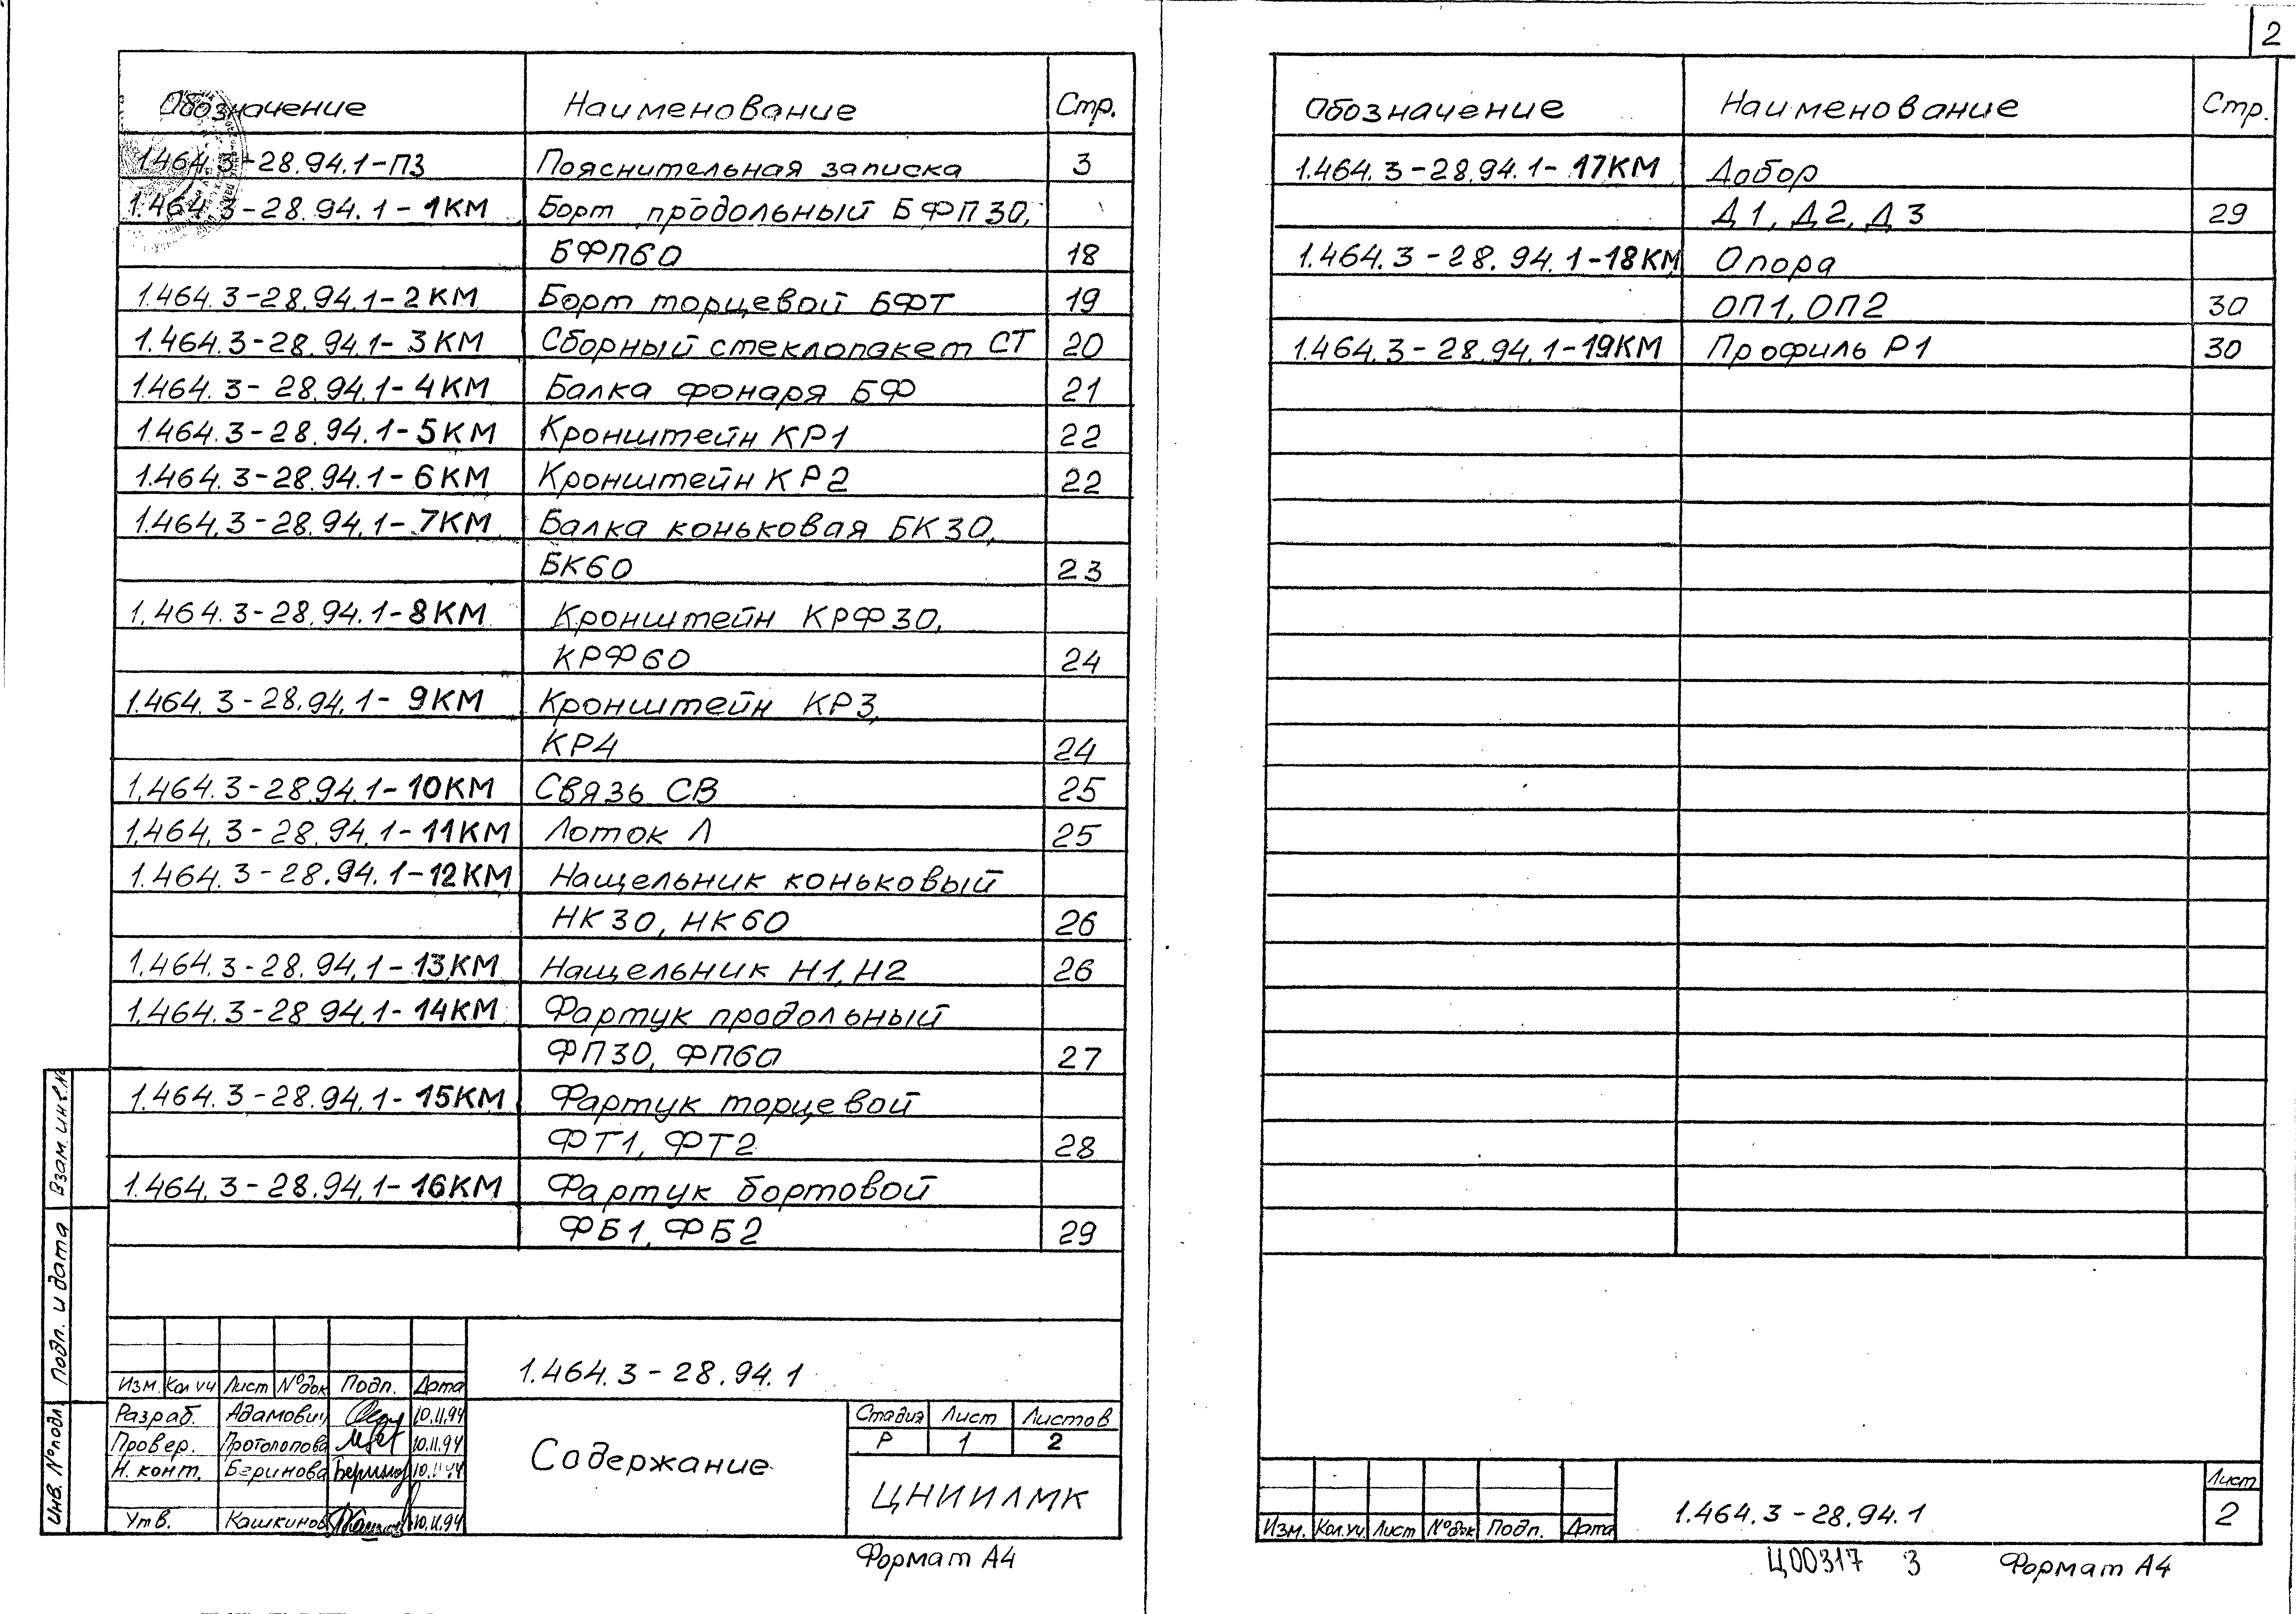 Обозначение Наименование Стр.
1.464.3-28.94.1-ПЗ Пояснительная записка 3
1.464.3-28.94.1-1КМ Борт продольный БФП30,
БФП60 18
1.464.3-28.94.1-2КМ Борт торцевой БФТ 19
1.464.3-28.94.1-3КМ Сборный стеклопакет СТ 20
1.464.3-28.94.1-4КМ Балка фонаря БФ 21
1.464.3-28.94.1-5КМ Кронштейн КР1 22
1.464.3-28.94.1-6КМ Кронштейн КР2 22
1.464.3-28.94.1-7КМ Балка коньковая БК30,
БК60 23
1.464.3-28.94.1-8КМ Кронштейн КРФ30,
КРФ60 24
1.464.3-28.94.1-9КМ Кронштейн КР3,
КР4 24
1.464.3-28.94.1-10КМ Связь СВ 25
1.464.3-28.94.1-11КМ Лоток Л 25
1.464.3-28.94.1-12КМ Нащельник коньковый
НК30, НК60 26
1.464.3-28.94.1-13КМ Нащельник Н1, Н2 26
1.464.3-28.94.1-14КМ Фартук продольный
ФП30, ФП60 27
1.464.3-28.94.1-15КМ Фартук торцевой
ФТ1, ФТ2 28
1.464.3-28.94.1-16КМ Фартук бортовой
ФБ1, ФБ2 29
Взам. инв.№
Подп. и дата
Инв. № подл.
1.464.3-28.94.1
Изм. Кол уч Лист №док Подп. Дата
Разраб. Адамович 10.11.94
Провер. Протопопова 10.11.94
Н. конт. Беринова 10.11.94
Утв. Кашкинов 10.11.94
Содержание
Стадия Лист Листов
Р 1 2
ЦНИИЛМК
Формат А4
2
Обозначение Наименование Стр.
1.464.3-28.94.1-17КМ Добор
Д1, Д2, Д3 29
1.464.3-28.94.1-18КМ Опора
ОП1, ОП2 30
1.464.3-28.94.1-19КМ Профиль Р1 30
Изм. Кол.уч. Лист №док Подп. Дата
1.464.3-28.94.1
Лист
2
Ц00317 3 Формат А4